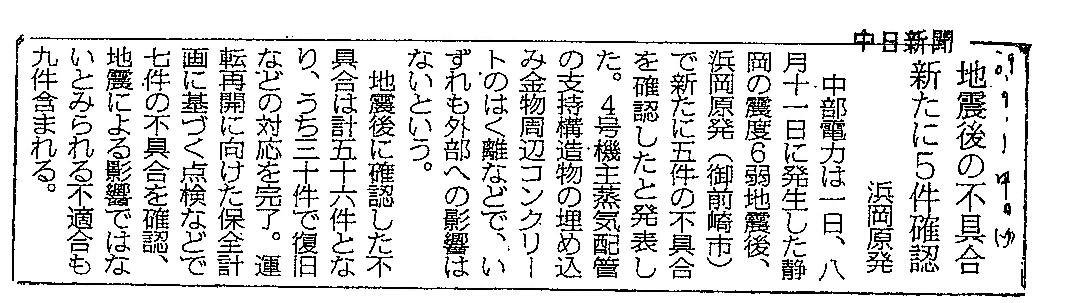 中日新聞
地震後の不具合
新たに5件確認
浜岡原発
中部電力は一日、八
月十一日に発生した静
岡の震度6弱地震後、
浜岡原発(御前崎市)
で新たに五件の不具合
を確認したと発表し
た。4号機主蒸気配管
の支持構造物の埋め込
み金物周辺コンクリー
トのはく離などで、い
ずれも外部への影響は
ないという。
地震後に確認した不
具合は計五十六件とな
り、うち三十件で復旧
などの対応を完了。運
転再開に向けた保全計
画に基づく点検などで
七件の不具合を確認、
地震による影響ではな
いとみられる不適合も
九件含まれる。